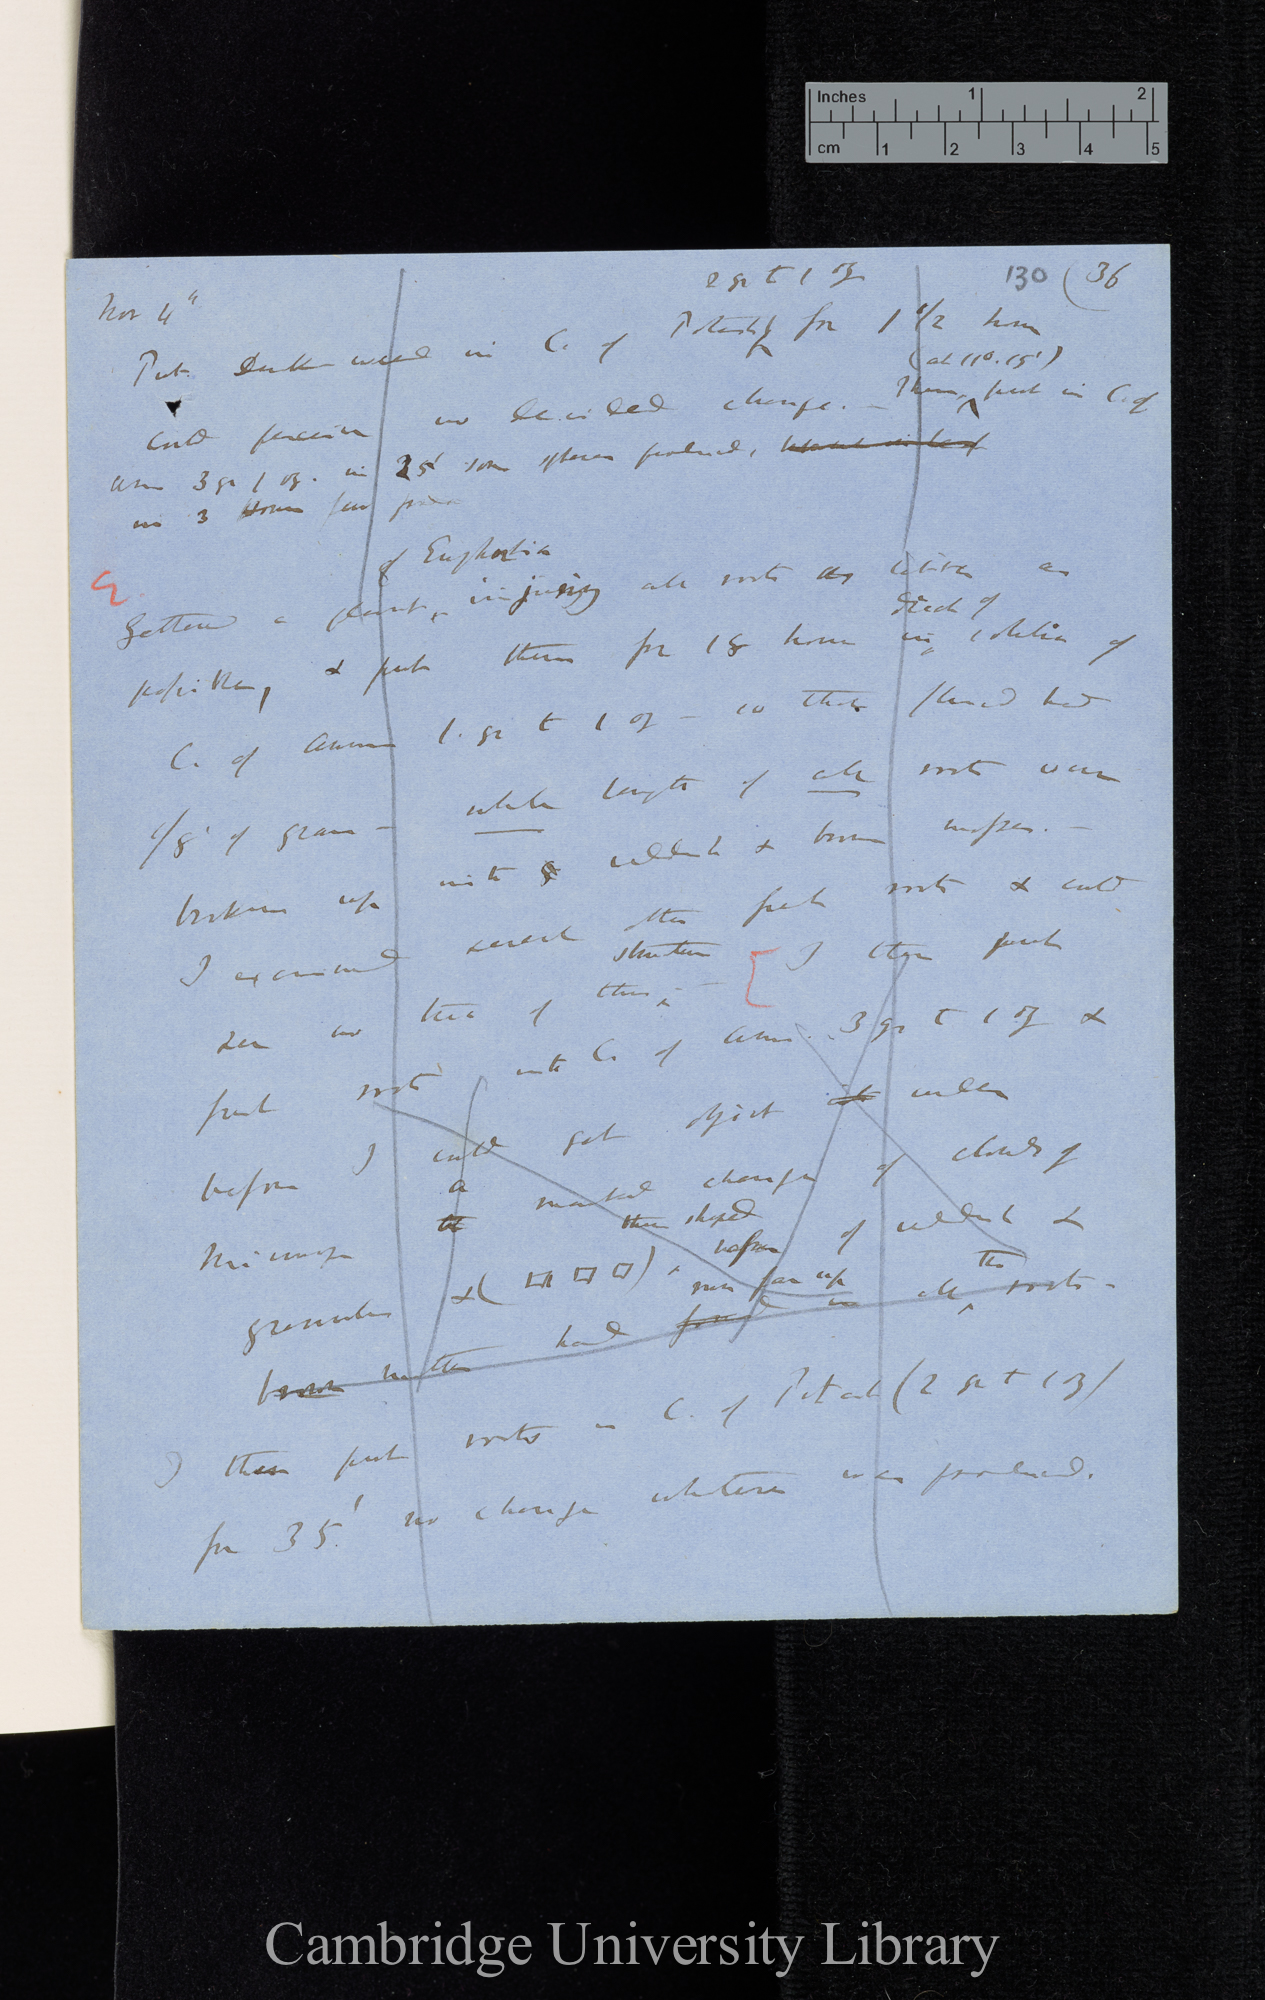 Inches 1 2
cm 1 2 3 4 5
130 (36
2 gr to 1 oz
Nov 4th
Put Duck weed in C. of Potash for 1 1/2 hour
(at 11°. 15')
could perceive no decided change. — Then put in C. of
Am 3 gr 1 oz. in 35' some spheres produced,
in 3 Hours few
of Euphorbia
Gathered a plant, injuring all roots as little as
each of
possible, & put them for 18 hours in solution of
C. of Ammon 1. gr to 1 oz — so that plant had
1/8 of grain — whole length of all roots were
broken up with reddish & brown masses. —
I examined several other fresh roots & could
structure
see no trace of this. — [ I then put
fresh roots into C. of Amm. 3 gr to 1 oz &
before I could get object under
Microscope a marked change of clouds of
these shaped
granules & (□ □ □) masses of reddish &
run far up the
brown matter had formed in all roots —
I then put roots in C. of Potash (2 gr to 1 oz)
for 35.' no change whatever was produced.
Cambridge University Library